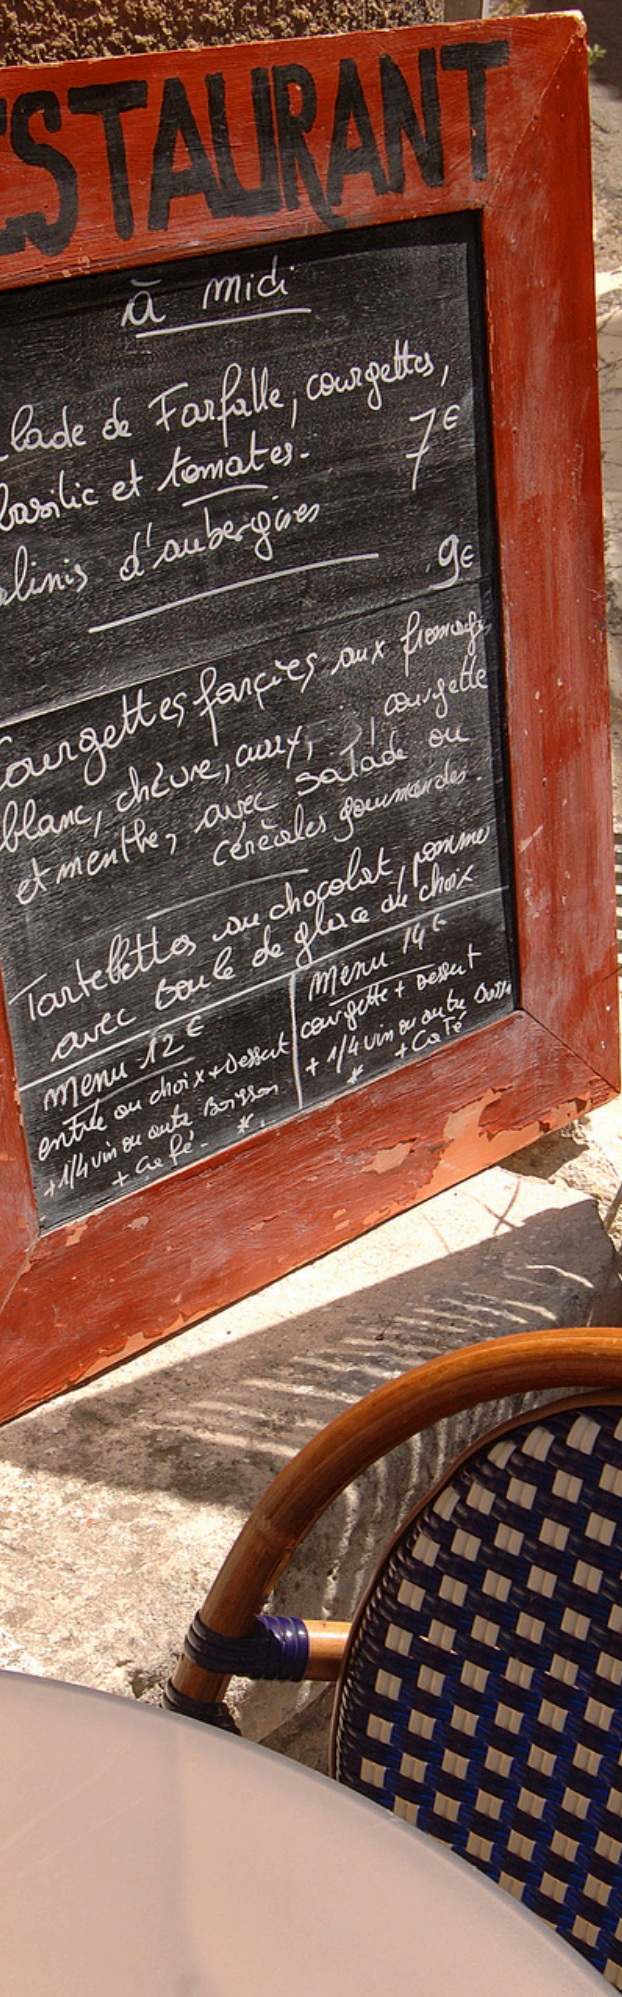 ESTAURANT
à midi
lade de Farfalle, courgettes,
basilic et tomates. 7€
linis d'aubergines
9€
Courgettes farcies aux fromages
blanc, chèvre, courgette
et menthe, avec salade ou
céréales gourmandes.
Tartelettes au chocolat, pomme
avec boule de glace au choix
menu 12€
entrée au choix + Dessert
+ 1/4 vin ou autre Boisson
+ Café. *
menu 14€
courgette + Dessert
+ 1/4 vin ou autre Boisson
* + Café